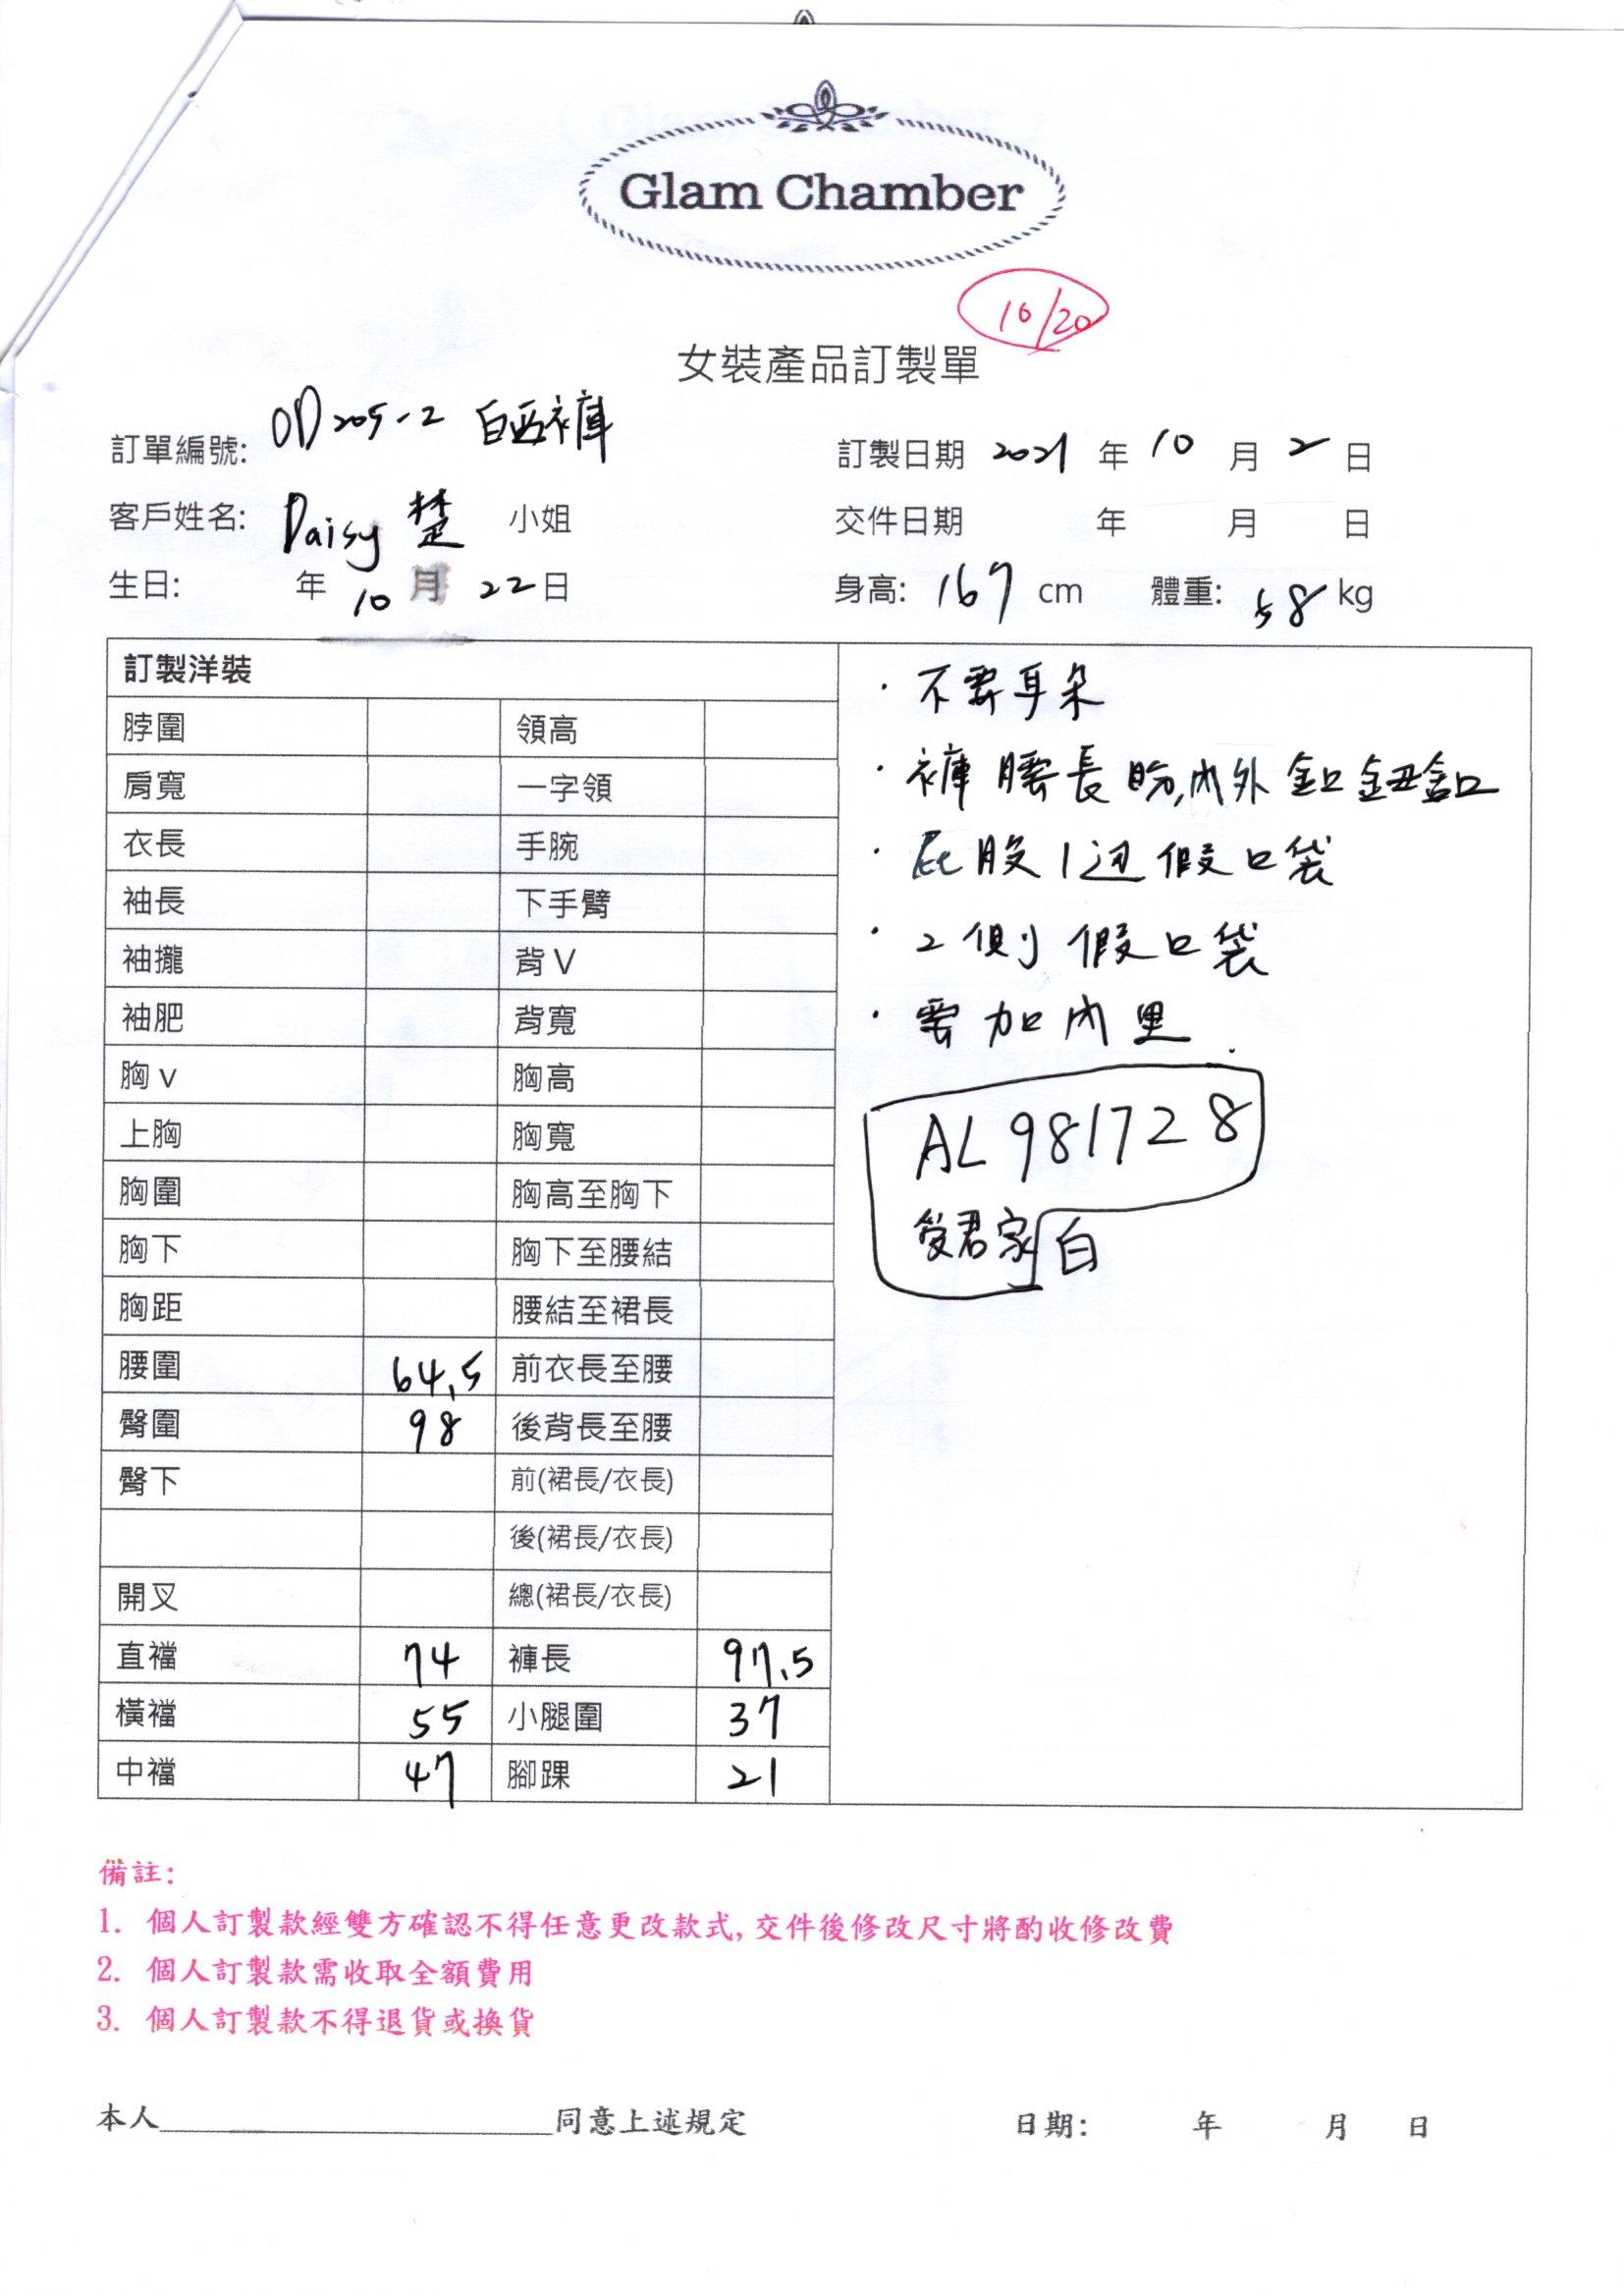 Glam Chamber
10/20
女裝產品訂製單
訂單編號: OD205-2 白西褲
訂製日期 2021 年 10 月 2 日
客戶姓名: Daisy 楚 小姐
交件日期 年 月 日
生日: 年 10 月 22 日
身高: 167 cm 體重: 58 kg
訂製洋裝
脖圍 領高
肩寬 一字領
衣長 手腕
袖長 下手臂
袖攏 背V
袖肥 背寬
胸v 胸高
上胸 胸寬
胸圍 胸高至胸下
胸下 胸下至腰結
胸距 腰結至裙長
腰圍 64.5 前衣長至腰
臀圍 98 後背長至腰
臀下 前(裙長/衣長)
後(裙長/衣長)
開叉 總(裙長/衣長)
直襠 74 褲長 97.5
橫襠 55 小腿圍 37
中襠 47 腳踝 21
· 不需耳朵
· 褲腰長方,內外釦鈕釦
· 屁股1邊假口袋
· 2側假口袋
· 需加內里.
AL981728
君家 白
備註:
1. 個人訂製款經雙方確認不得任意更改款式, 交件後修改尺寸將酌收修改費
2. 個人訂製款需收取全額費用
3. 個人訂製款不得退貨或換貨
本人 同意上述規定
日期: 年 月 日